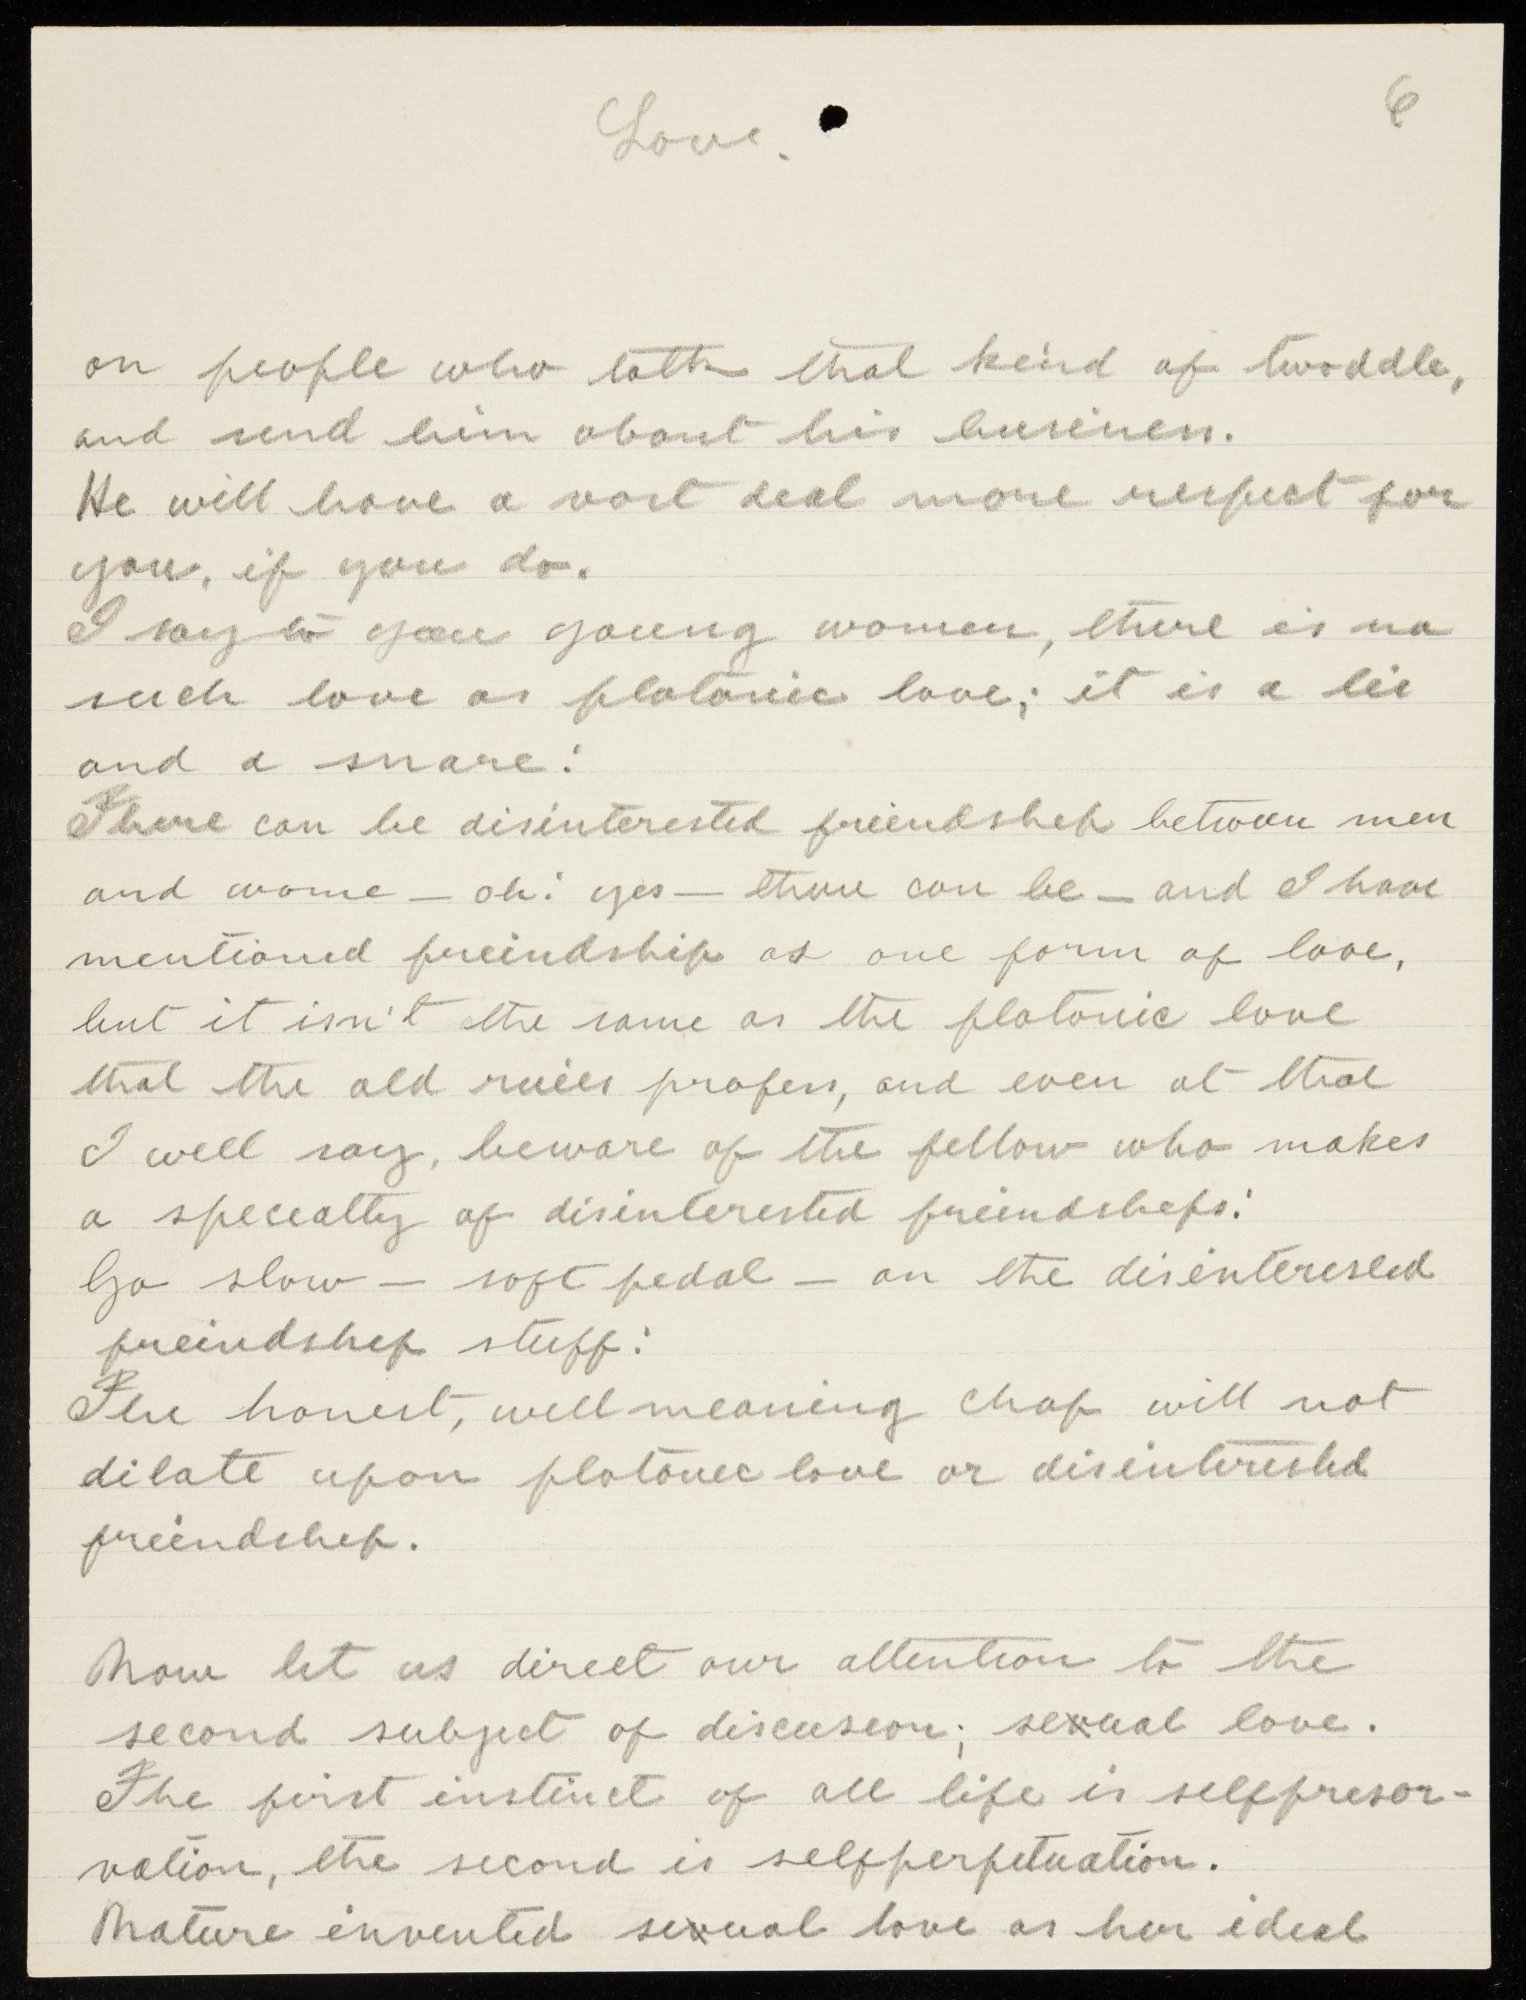 Love.
6
on people who talk that kind of twoddle,
and send him about his business.
He will have a vast deal more respect for
you, if you do.
I say to you young women, there is no
such love as platonic love; it is a lie
and a snare!
There can be disinterested freindship between men
and wome — oh! yes — there can be — and I have
mentioned freindship as one form of love,
but it isn't the same as the platonic love
that the old profess, and even at that
I will say, beware of the fellow who makes
a specealty of disinterested freindships!
Go slow — soft pedal — on the disinterested
freindship stuff!
The honest, wellmeaning chap will not
dilate upon platonic love or disinterested
freindship.
Now let us direct our attention to the
second subject of discussion; sexual love.
The first instinct of all life is selfpreser-
vation, the second is selfperpetuation.
Nature invented sexual love as her ideal